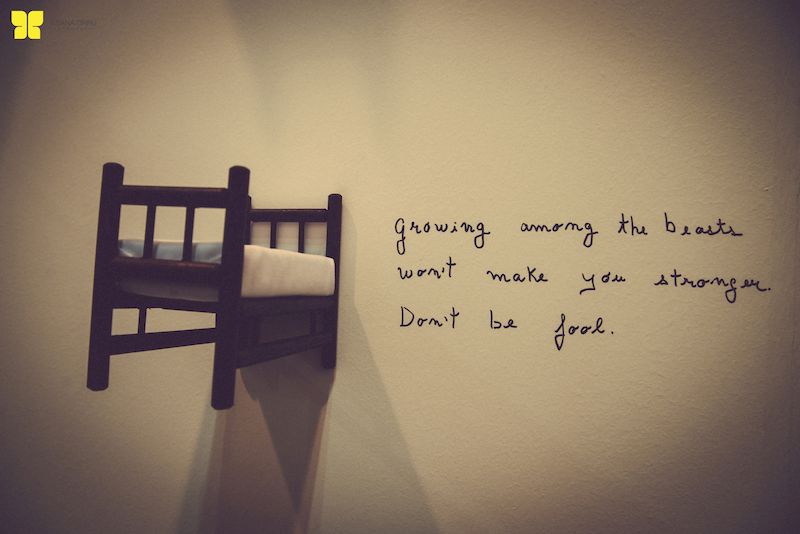 Growing among the beasts
won't make you stronger.
Don't be fool.